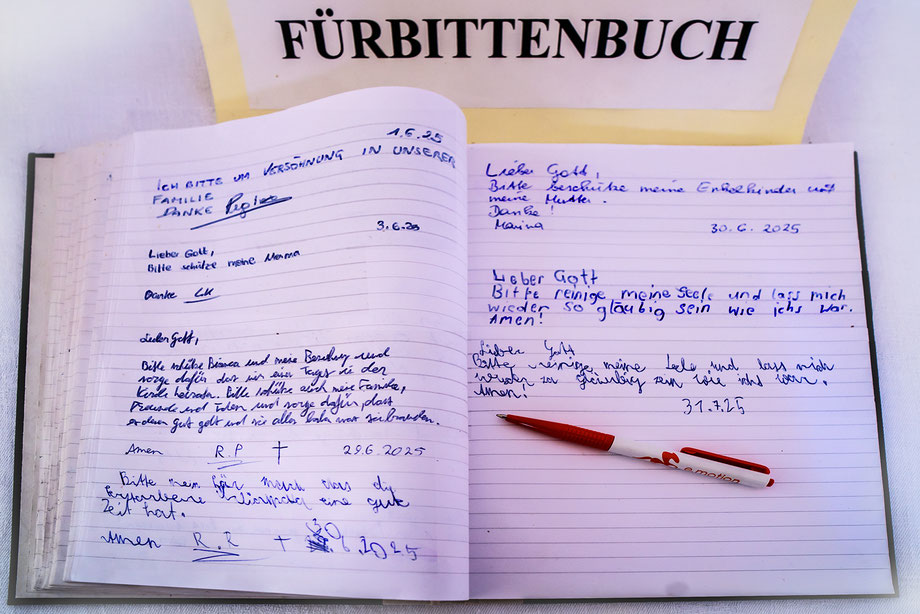 FÜRBITTENBUCH
1.6.25
ICH BITTE UM VERSÖHNUNG IN UNSERER
FAMILIE
DANKE
3.6.20
Lieber Gott,
Bitte schütze meine Mama
Danke LK
Lieber Gott,
Bitte schütze Bianca und meine Beziehung und
sorge dafür das wir eines Tages in der
Kirche heiraten. Bitte schütze auch meine Familie,
Freunde und Islam und sorge dafür, dass
es denen gut geht und sie alles haben was sie brauchen.
Amen R.P † 29.6.2025
Bitte mein Gott mach das die
verstorbene eine gute
Zeit hat.
Amen R.R † 30.6.2025
Lieber Gott,
Bitte beschütze meine Enkelkinder und
meine Mutter.
Danke!
Marina 30.6.2025
Lieber Gott
Bitte reinige meine Seele und lass mich
wieder so gläubig sein wie ichs war.
Amen!
Lieber Gott
Bitte reinige meine Sele und lass mich
wieder so sein wie icht war.
Amen!
31.7.25
e-motion